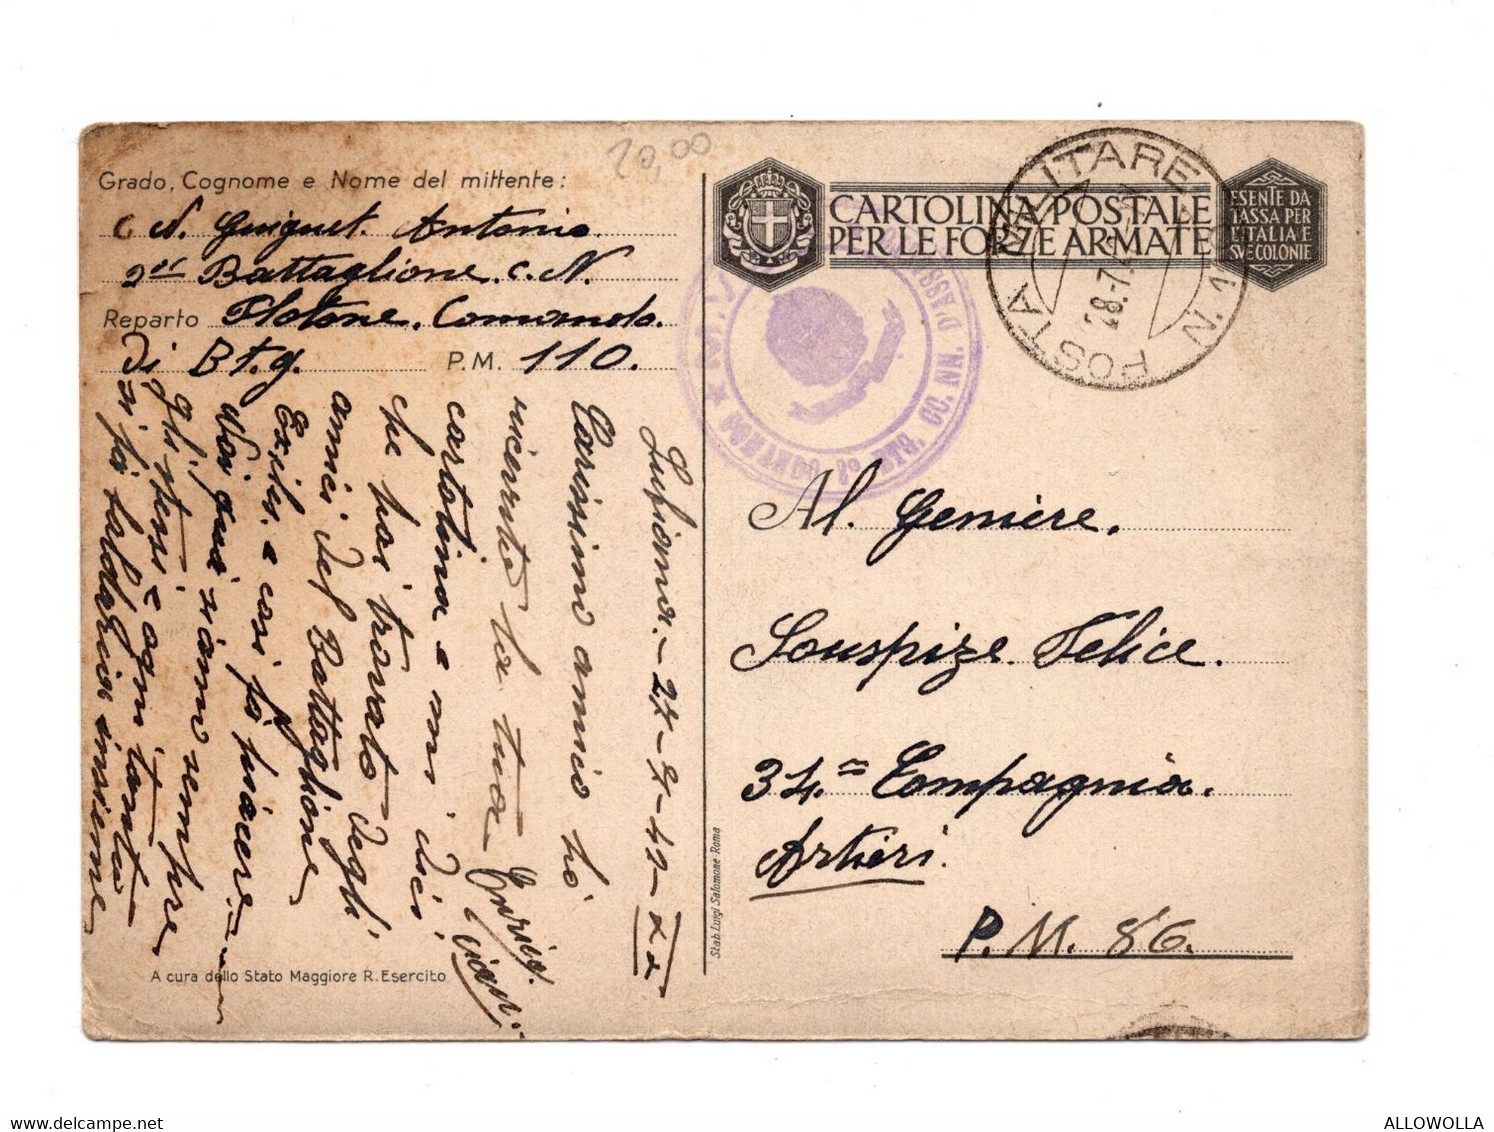 20,00
Grado, Cognome e Nome del mittente:
C N. Guiguet. Antonio.
2° Battaglione. C. N.
Reparto Plotone. Comando.
Di Btg. P.M. 110.
Lubiana. - 27 - 7 - 42 - XX
Carissimo amico hò
ricevuto la tua
cartolina e mi dici
che hai trovato degli
amici del Battaglione
Exiles. e così fà piacere.
Noi quà siamo sempre
gli stessi e ogni tanto
si fà baldoria insieme
Ciau.
A cura dello Stato Maggiore R. Esercito
Stab. Luigi Salomone Roma
CARTOLINA POSTALE
PER LE FORZE ARMATE
ESENTE DA
TASSA PER
L'ITALIA E
SUE COLONIE
POSTA MILITARE N.
28.7.
COMANDO 2° BTG. CC. NN. D'ASSALTO
Al. Geniere.
Souspize. Felice.
34.= Compagnia.
Artieri.
P. M. 86.
ALLOWOLLA